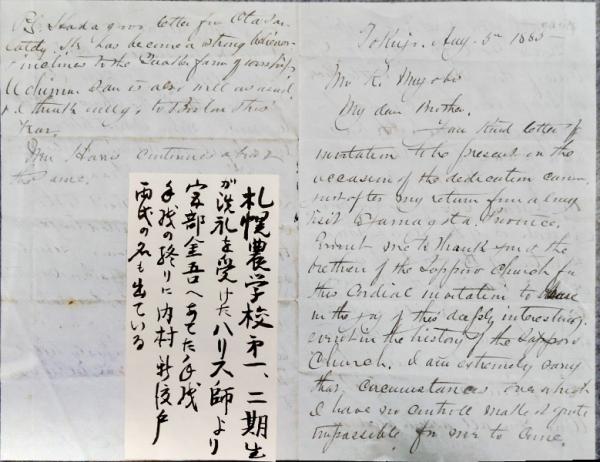 P.S. I had a good letter from Ota San
lately. He has become a strong believer
inclines to the Quaker form of worship
Uchimura San is also well as usual,
& I think will go to Boston this
Year.
Mrs Harris continues about
the same.
札幌農学校第一、二期生
が洗礼を受けたハリス師より
宮部金吾へあてた手紙
手紙の終りに内村 新渡戸
両氏の名も出ている
Tokio, Aug. 5th 1885
Mr K. Miyabe
My dear Brother.
Your kind letter of
invitation to be present on the
occasion of the dedication came
just after my return from a long
visit to Yamagata Province.
Permit me to thank you & the
brethren of the Sapporo Church for
this Cordial invitation to share
in the joy of this deeply interesting
event in the history of the Sapporo
Church. I am extremely sorry
that circumstances over which
I have no controll make it quite
impossible for me to come.